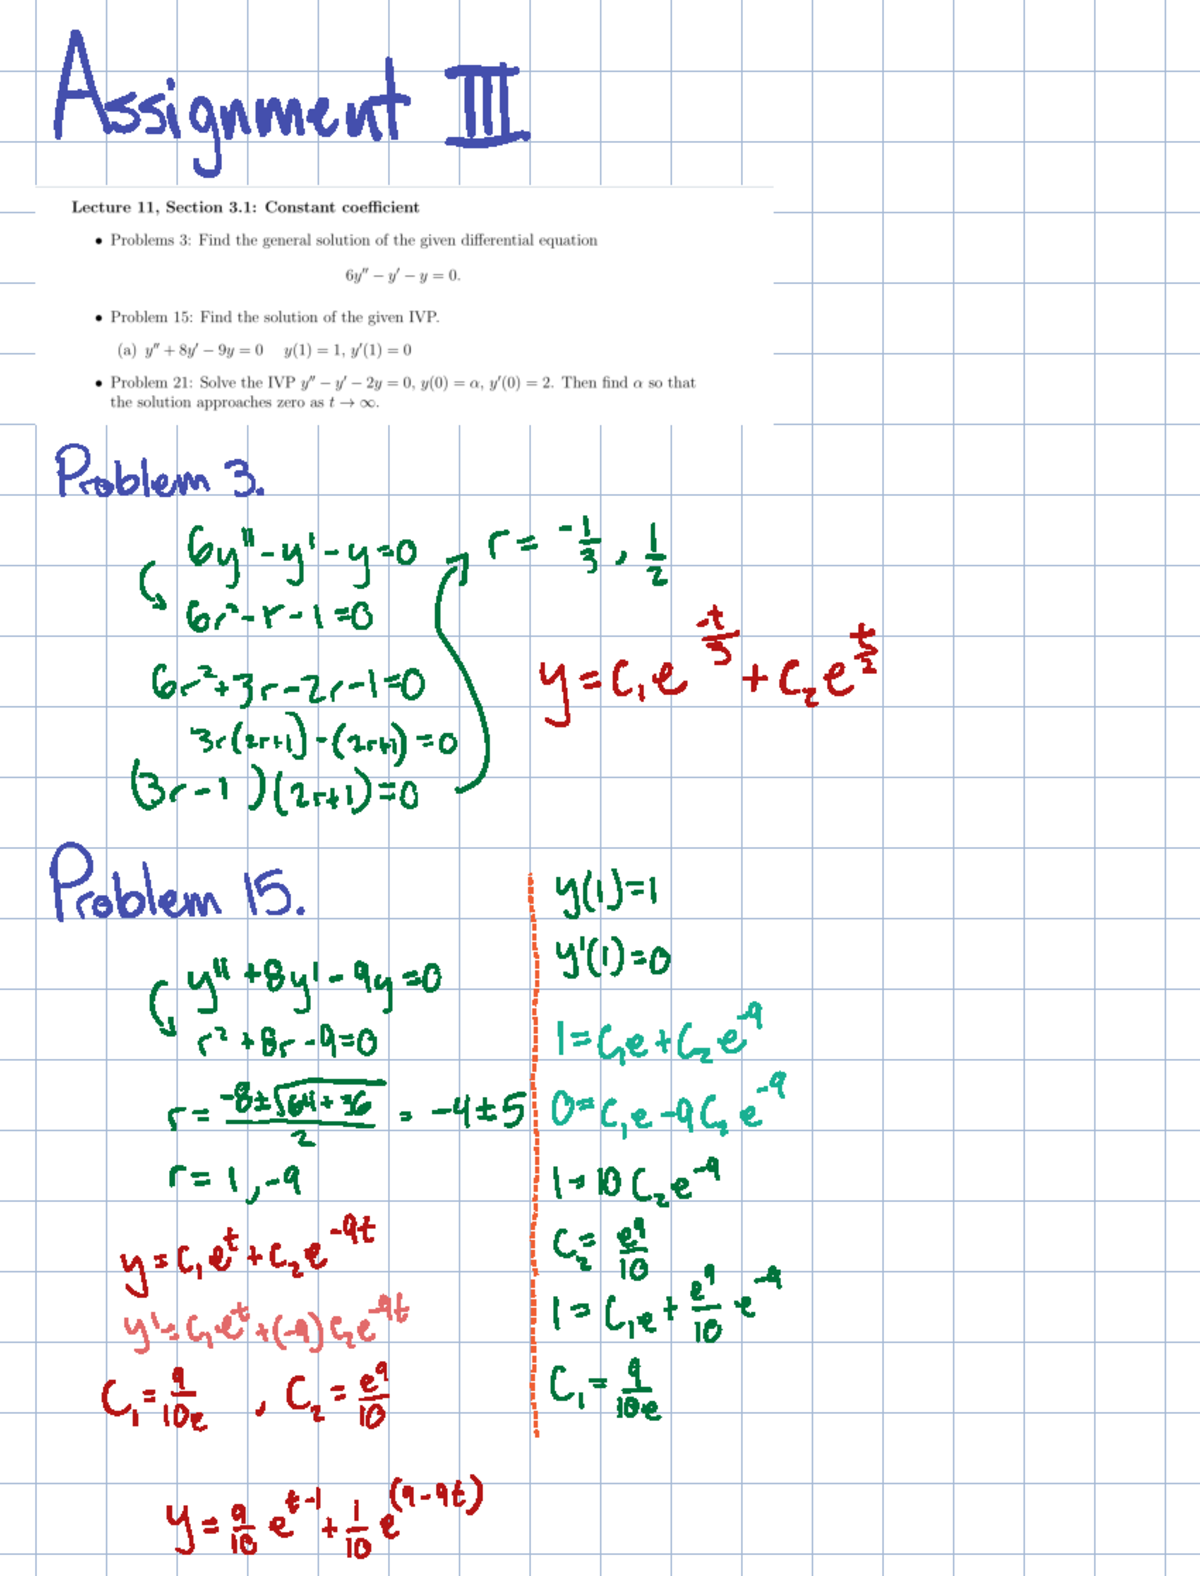 Assignment III
Lecture 11, Section 3.1: Constant coefficient
• Problems 3: Find the general solution of the given differential equation
6y″ − y′ − y = 0.
• Problem 15: Find the solution of the given IVP.
(a) y″ + 8y′ − 9y = 0 y(1) = 1, y′(1) = 0
• Problem 21: Solve the IVP y″ − y′ − 2y = 0, y(0) = α, y′(0) = 2. Then find α so that
the solution approaches zero as t → ∞.
Problem 3.
6y″ - y′ - y = 0
6r² - r - 1 = 0
6r² + 3r - 2r - 1 = 0
3r(2r+1) - (2r+1) = 0
(3r-1)(2r+1) = 0
r = -1/3, 1/2
y = C₁e^(-t/3) + C₂e^(t/2)
Problem 15.
y″ + 8y′ - 9y = 0
r² + 8r - 9 = 0
r = (-8 ± √(64+36))/2 = -4 ± 5
r = 1, -9
y = C₁e^t + C₂e^(-9t)
y′ = C₁e^t + (-9)C₂e^(-9t)
C₁ = 9/(10e), C₂ = e⁹/10
y = 9/10 e^(t-1) + 1/10 e^(9-9t)
y(1) = 1
y′(1) = 0
1 = C₁e + C₂e^(-9)
0 = C₁e - 9C₂e^(-9)
1 = 10C₂e^(-9)
C₂ = e⁹/10
1 = C₁e + e⁹/10 e^(-9)
C₁ = 9/(10e)